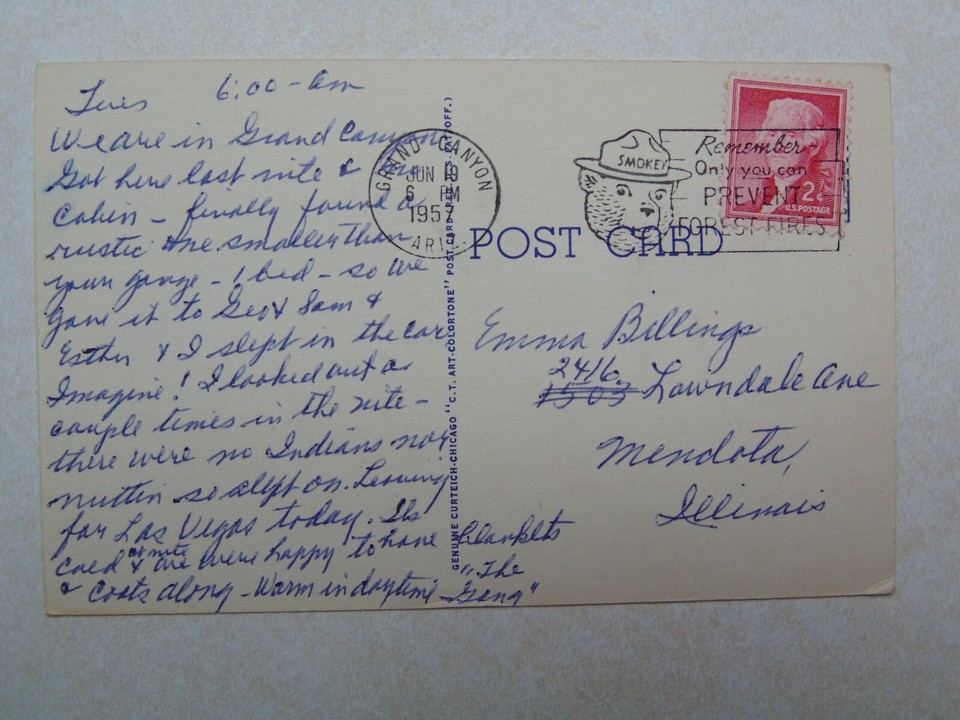 Tues 6:00 - am
We are in Grand Canyon
Got here last nite &
Cabin - finally found a
rustic one smaller than
your garage - 1 bed - so we
gave it to Geo & Sam &
Esther & I slept in the car
Imagine! I looked out a
couple times in the nite -
there were no Indians nor
nuttin so slept on. Leaving
for Las Vegas today. Its
coed at nite & are were happy to have blankets
& Coats along - Warm in daytime - "The
Gang"
GENUINE CURTEICH-CHICAGO "C.T. ART-COLORTONE" POST CARD (REG. U.S. PAT. OFF.)
GRAND CANYON
JUN 19
6 PM
195
ARIZ.
SMOKEY
Remember
Only you can
PREVENT
FOREST FIRES
2¢
U.S. POSTAGE
POST CARD
Emma Billings
2416
1503 Lawndale Ave
Mendota,
Illinois